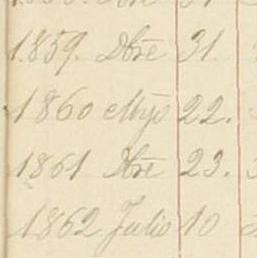 1859. Dbre 31.
1860 Myo 22.
1861 Dbre 23.
1862 Julio 10